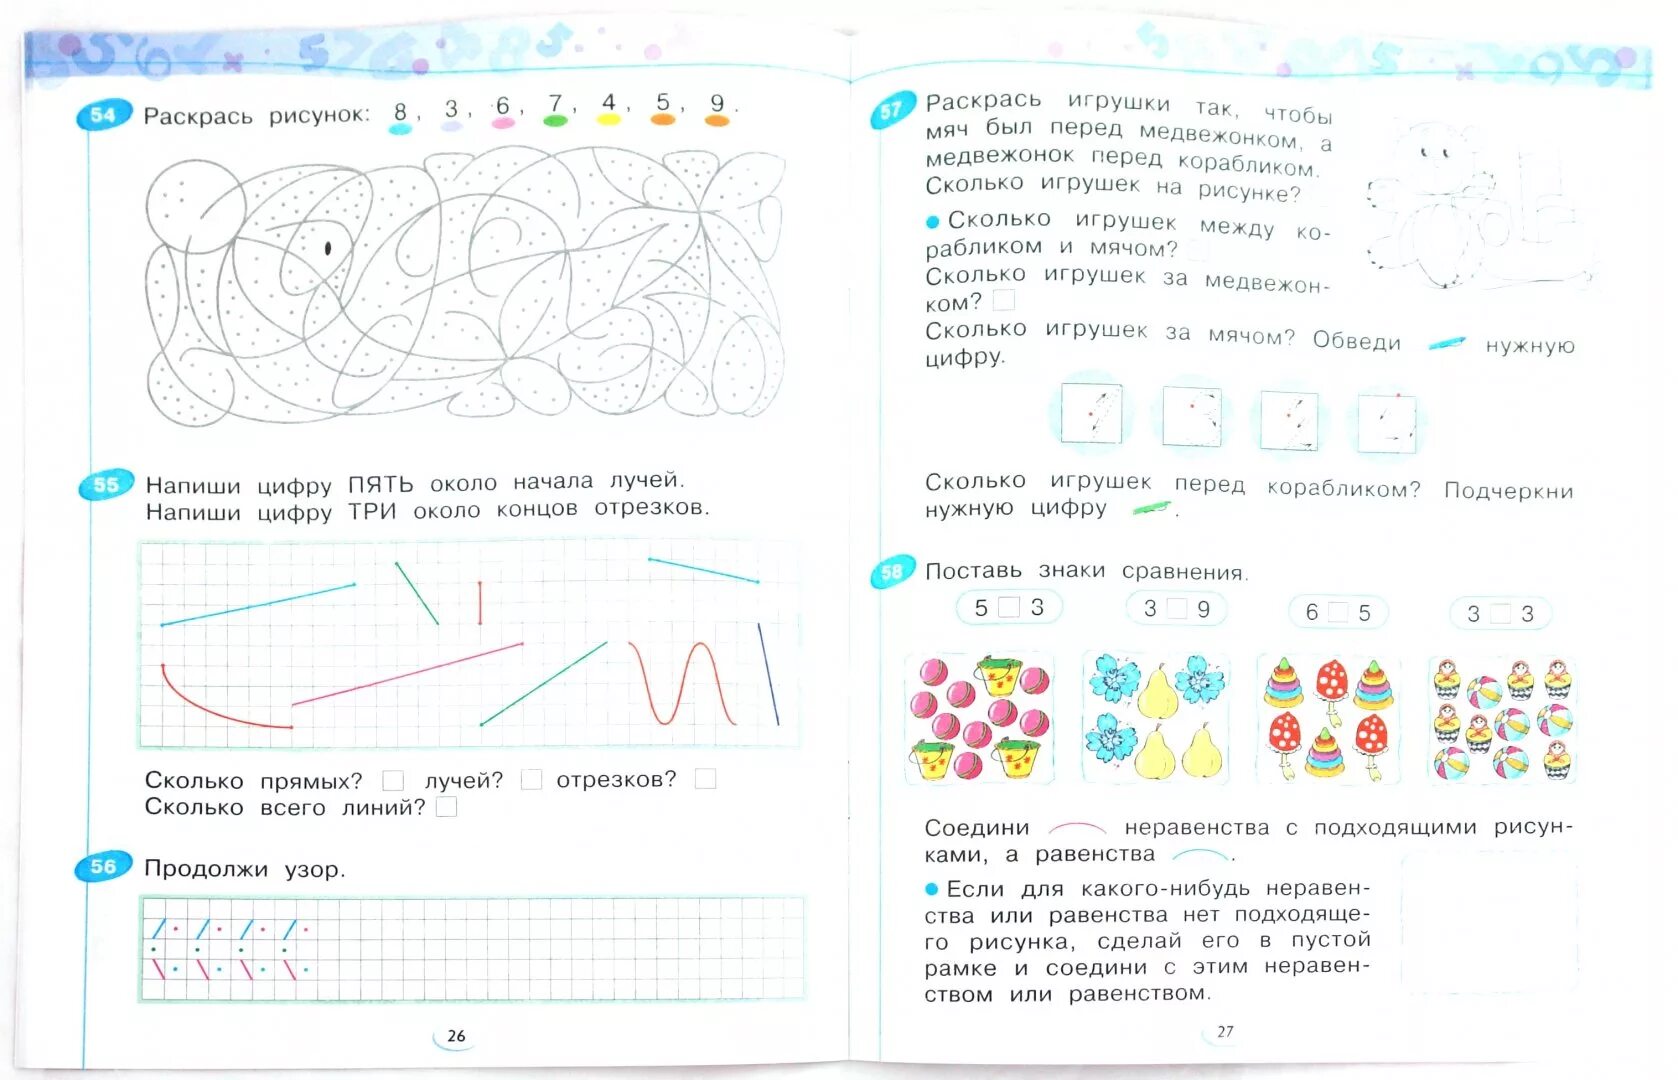 54 Раскрась рисунок: 8, 3, 6, 7, 4, 5, 9.
55 Напиши цифру ПЯТЬ около начала лучей.
Напиши цифру ТРИ около концов отрезков.
Сколько прямых? лучей? отрезков?
Сколько всего линий?
56 Продолжи узор.
26
57 Раскрась игрушки так, чтобы
мяч был перед медвежонком, а
медвежонок перед корабликом.
Сколько игрушек на рисунке?
• Сколько игрушек между ко-
рабликом и мячом?
Сколько игрушек за медвежон-
ком?
Сколько игрушек за мячом? Обведи нужную
цифру.
Сколько игрушек перед корабликом? Подчеркни
нужную цифру.
58 Поставь знаки сравнения.
5 3 3 9 6 5 3 3
Соедини неравенства с подходящими рисун-
ками, а равенства.
• Если для какого-нибудь неравен-
ства или равенства нет подходяще-
го рисунка, сделай его в пустой
рамке и соедини с этим неравен-
ством или равенством.
27